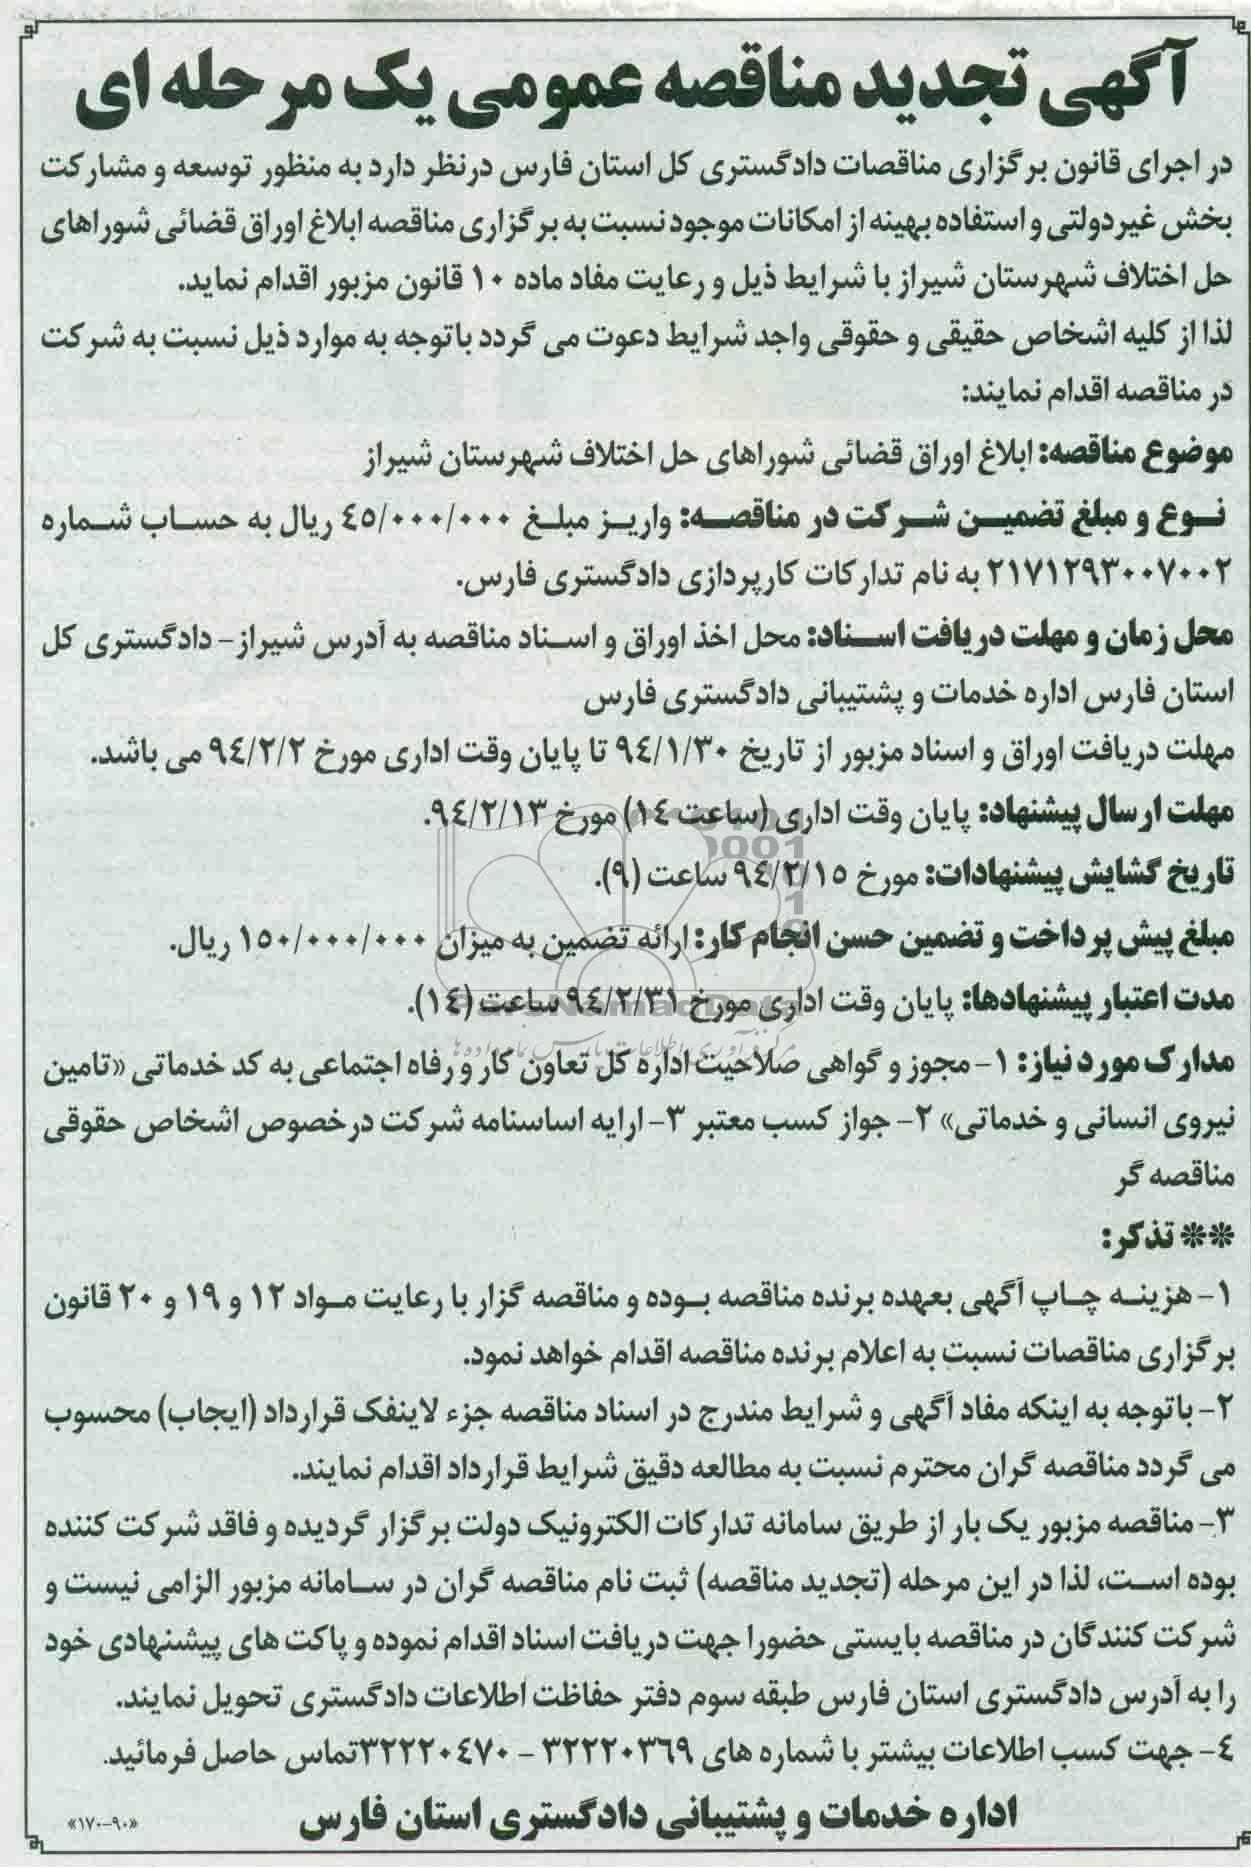 آگهی تجدید مناقصه عمومی یک مرحله ای
در اجرای قانون برگزاری مناقصات دادگستری کل استان فارس درنظر دارد به منظور توسعه و مشارکت
بخش غیردولتی و استفاده بهینه از امکانات موجود نسبت به برگزاری مناقصه ابلاغ اوراق قضائی شوراهای
حل اختلاف شهرستان شیراز با شرایط ذیل و رعایت مفاد ماده ۱۰ قانون مزبور اقدام نماید.
لذا از کلیه اشخاص حقیقی و حقوقی واجد شرایط دعوت می گردد باتوجه به موارد ذیل نسبت به شرکت
در مناقصه اقدام نمایند:
موضوع مناقصه: ابلاغ اوراق قضائی شوراهای حل اختلاف شهرستان شیراز
نوع و مبلغ تضمین شرکت در مناقصه: واریز مبلغ ۴۵/۰۰۰/۰۰۰ ریال به حساب شماره
۲۱۷۱۲۹۳۰۰۷۰۰۲ به نام تدارکات کارپردازی دادگستری فارس.
محل زمان و مهلت دریافت اسناد: محل اخذ اوراق و اسناد مناقصه به آدرس شیراز- دادگستری کل
استان فارس اداره خدمات و پشتیبانی دادگستری فارس
مهلت دریافت اوراق و اسناد مزبور از تاریخ ۹۴/۱/۳۰ تا پایان وقت اداری مورخ ۹۴/۲/۲ می باشد.
مهلت ارسال پیشنهاد: پایان وقت اداری (ساعت ۱۴) مورخ ۹۴/۲/۱۳.
تاریخ گشایش پیشنهادات: مورخ ۹۴/۲/۱۵ ساعت (۹).
مبلغ پیش پرداخت و تضمین حسن انجام کار: ارائه تضمین به میزان ۱۵۰/۰۰۰/۰۰۰ ریال.
مدت اعتبار پیشنهادها: پایان وقت اداری مورخ ۹۴/۲/۳۱ ساعت (۱۴).
ParsNamadData
مرکز فرآوری اطلاعات پارس نماد داده ها
مدارک مورد نیاز: ۱- مجوز و گواهی صلاحیت اداره کل تعاون کار و رفاه اجتماعی به کد خدماتی «تامین
نیروی انسانی و خدماتی» ۲- جواز کسب معتبر ۳- ارایه اساسنامه شرکت درخصوص اشخاص حقوقی
مناقصه گر
** تذکر:
۱- هزینه چاپ آگهی بعهده برنده مناقصه بوده و مناقصه گزار با رعایت مواد ۱۲ و ۱۹ و ۲۰ قانون
برگزاری مناقصات نسبت به اعلام برنده مناقصه اقدام خواهد نمود.
۲- باتوجه به اینکه مفاد آگهی و شرایط مندرج در اسناد مناقصه جزء لاینفک قرارداد (ایجاب) محسوب
می گردد مناقصه گران محترم نسبت به مطالعه دقیق شرایط قرارداد اقدام نمایند.
۳- مناقصه مزبور یک بار از طریق سامانه تدارکات الکترونیک دولت برگزار گردیده و فاقد شرکت کننده
بوده است، لذا در این مرحله (تجدید مناقصه) ثبت نام مناقصه گران در سامانه مزبور الزامی نیست و
شرکت کنندگان در مناقصه بایستی حضورا جهت دریافت اسناد اقدام نموده و پاکت های پیشنهادی خود
را به آدرس دادگستری استان فارس طبقه سوم دفتر حفاظت اطلاعات دادگستری تحویل نمایند.
۴- جهت کسب اطلاعات بیشتر با شماره های ۳۲۲۲۰۳۶۹ - ۳۲۲۲۰۴۷۰تماس حاصل فرمائید.
اداره خدمات و پشتیبانی دادگستری استان فارس
«۱۷۰-۹۰»